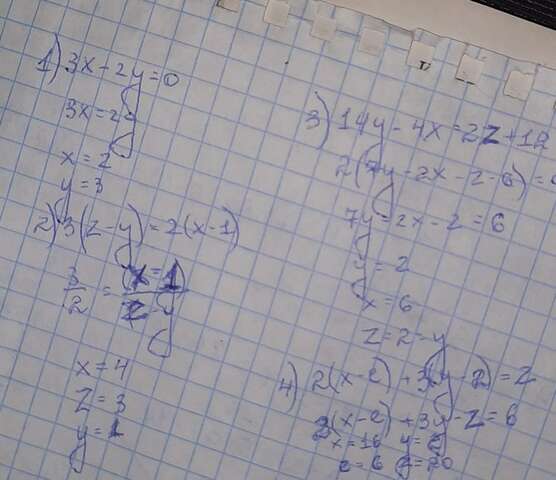 1) 3x - 2y = 0
3x = 2y
x = 2
y = 3
2) 3(z - y) = 2(x - 1)
3/2 = (x - 1)/z - y
x = 4
z = 3
y = 1
3) 14y - 4x = 2z + 12
2(7y - 2x - z - 6) =
7y = 2x - 2 = 6
y = 2
x = 6
z = 2 - y
4) 2(x - e) + 3(y - 2) = z
2(x - e) + 3y - z = 6
x = 16 y = 2
e = 6 z = 20